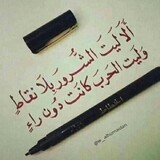 ألا ليت الشرور بلا نقاطٍ
وليت الحرب كانت دون راءٍ